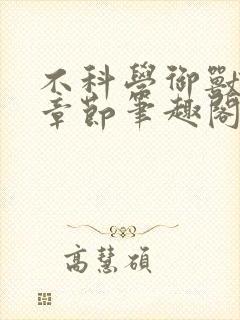 不科學御獸
章節筆趣閣
高慧碩